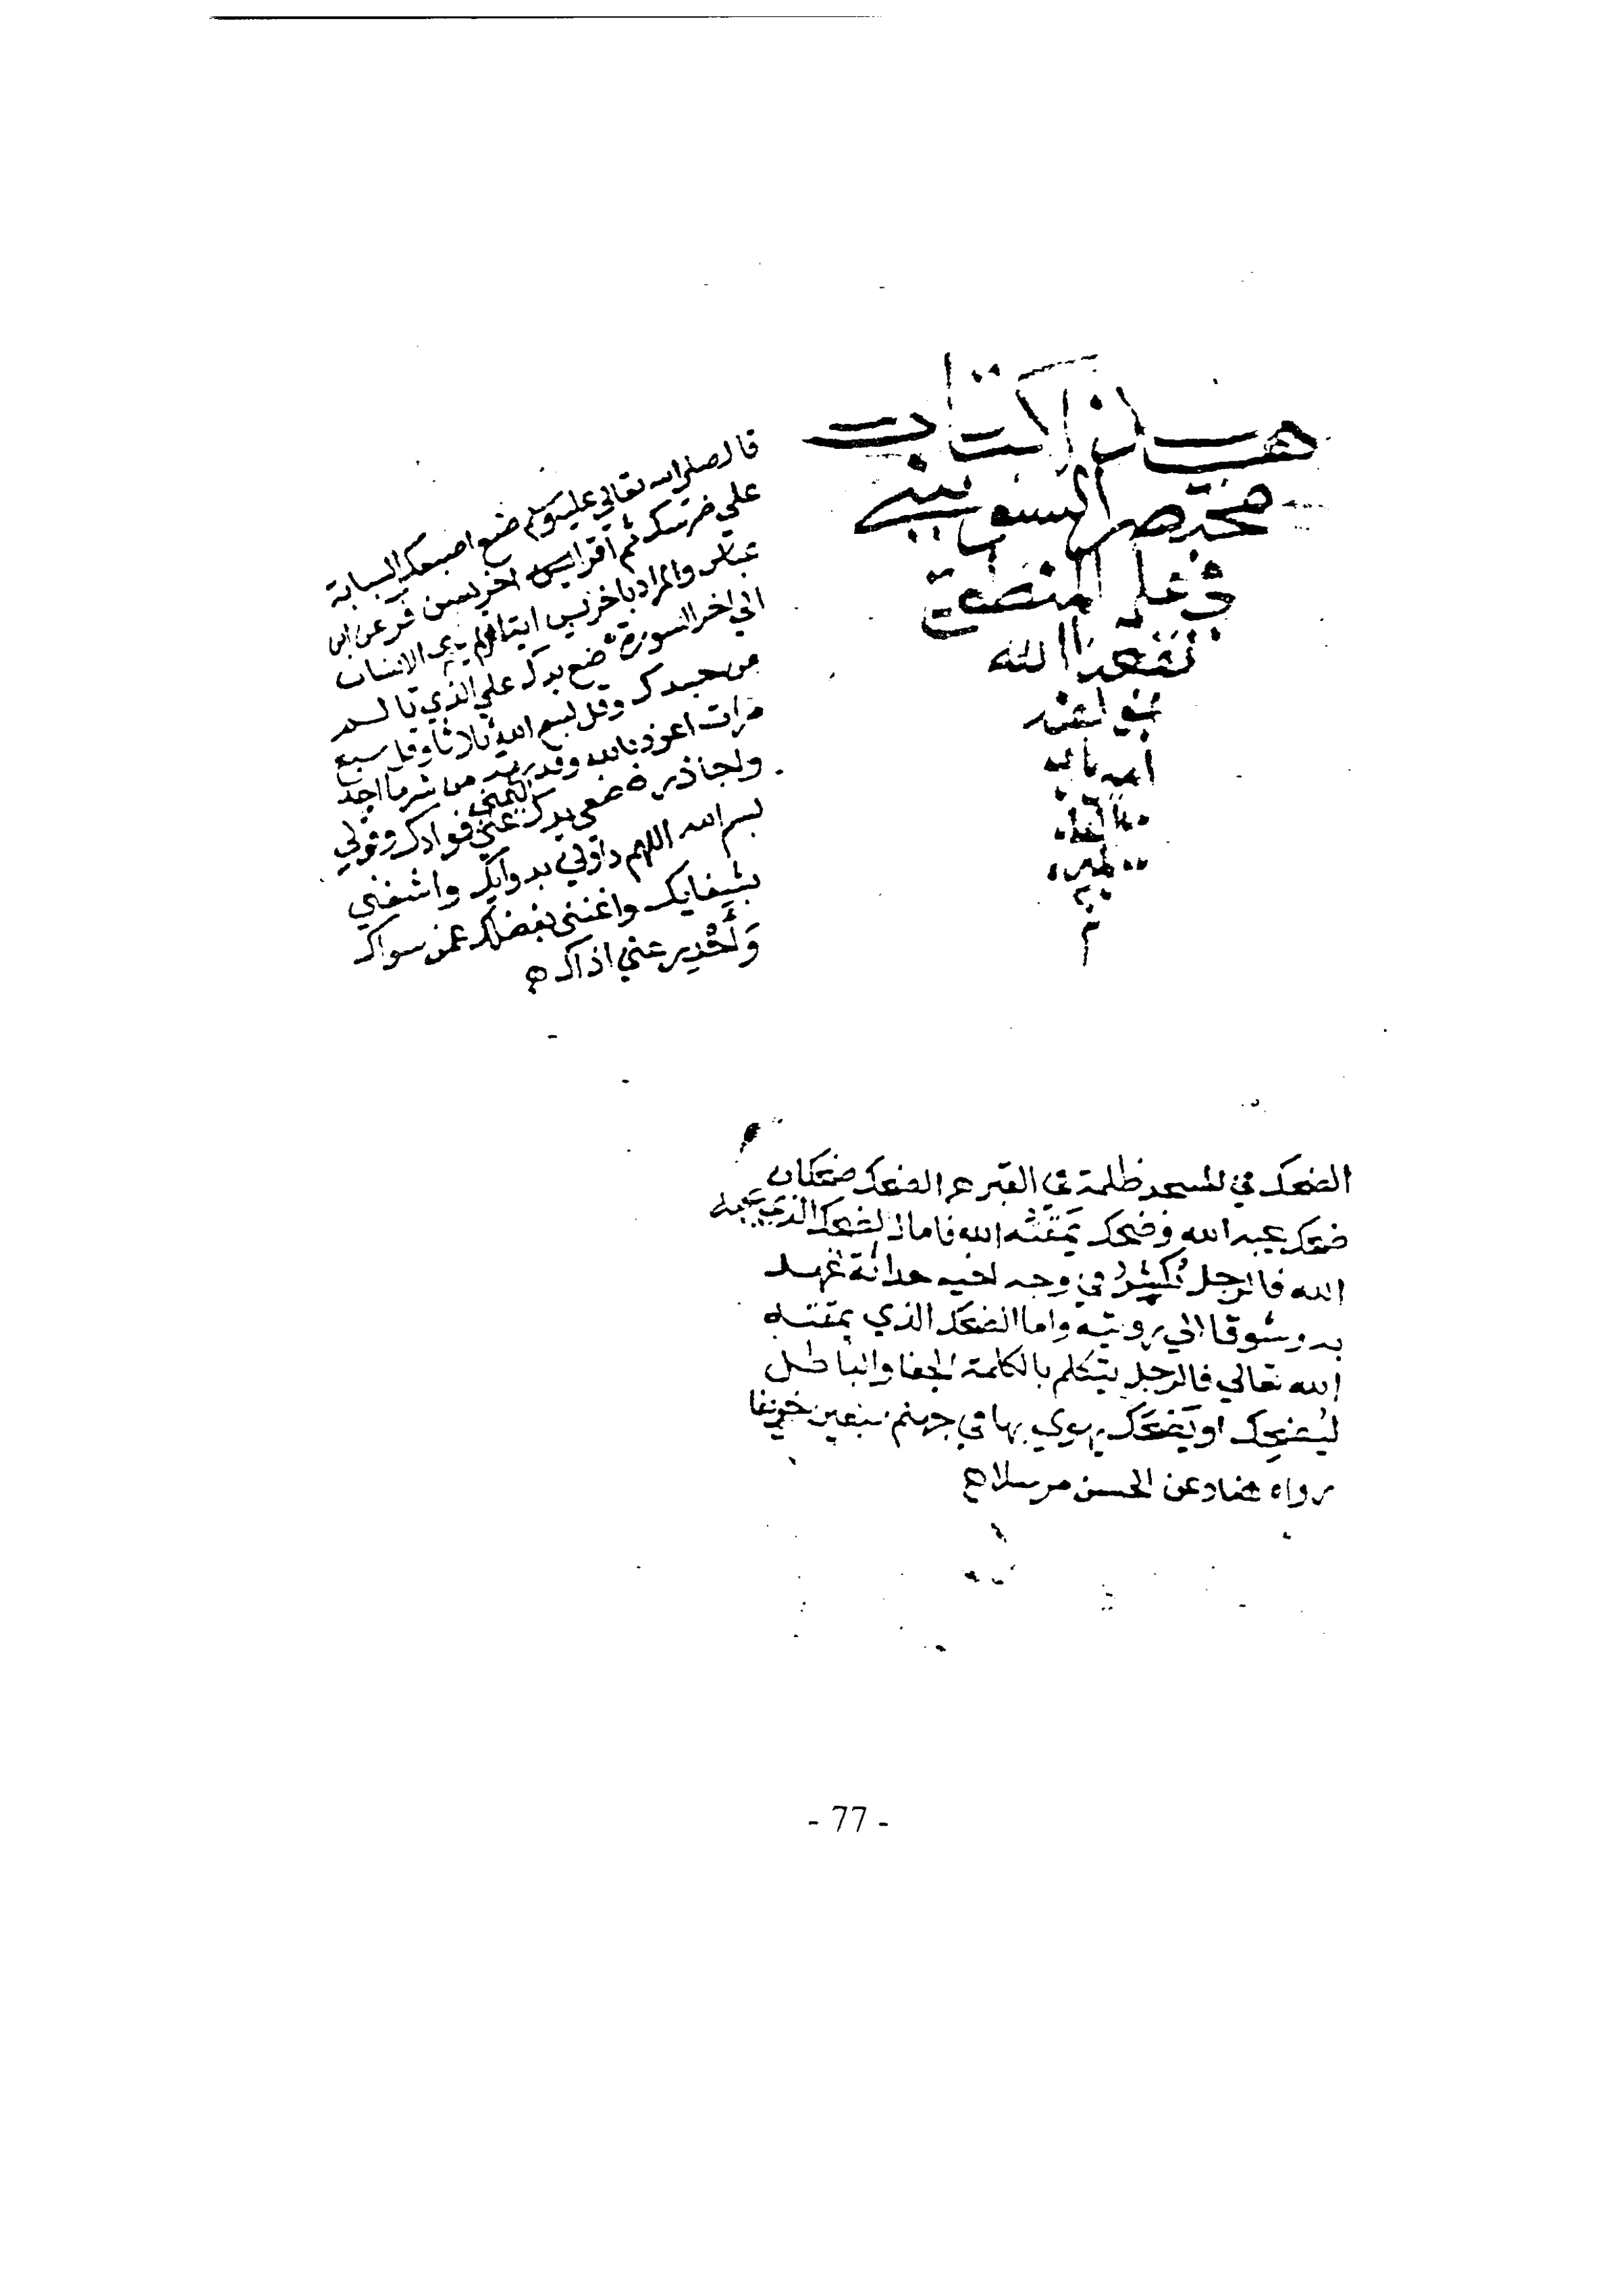 هذا كتاب
مختصر السنوسي
في علم المنطق
نفعنا الله
به امين
قال صلي الله تعالي عليه وسلم ضع اصبعك السبابة
علي ضرسك ثم اقرا يس اخر يسن فر عن ابن
عباس والمراد باخر يس ايتا اولم ير الانسان
الي اخر السورة ضع يدك علي الذي تالم
من جسدك وقل بسم الله ثلاثا وقل سبع
مرات اعوذ بالله وقدرته من شر ما اجد
واحاذر ه ضعي يدك اليمني علي فوادك وقولي
بسم الله اللهم داوني بدوايك واشفني
بشفايك واغنني بفضلك عمن سواك
وَأَحْدِر عني اذاك ه
الضحك في المسجد ظلمة في القبر الضحك ضحكان
ضحك يحبه الله وضحك يمقته الله فاما الضحك الذي يحبه
الله فالرجل يُكشِرُ في وجه اخيه حداثة عهد
به وشوقا الي رويته واما الضحك الذي يمقته
الله تعالي فالرجل يتكلم بالكلمة الجفا والباطل
ليُضحِك او يَضحَك يهوي بها في جهنم سبعين خريفا
رواه هناد عن الحسن مرسلا ه
- 77 -